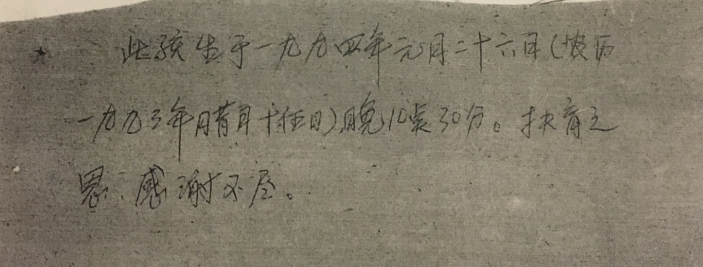 此孩生于一九九四年元月二十六日(农历
一九九三年腊月十伍日)晚10点30分。扶育之
恩、感谢不尽。